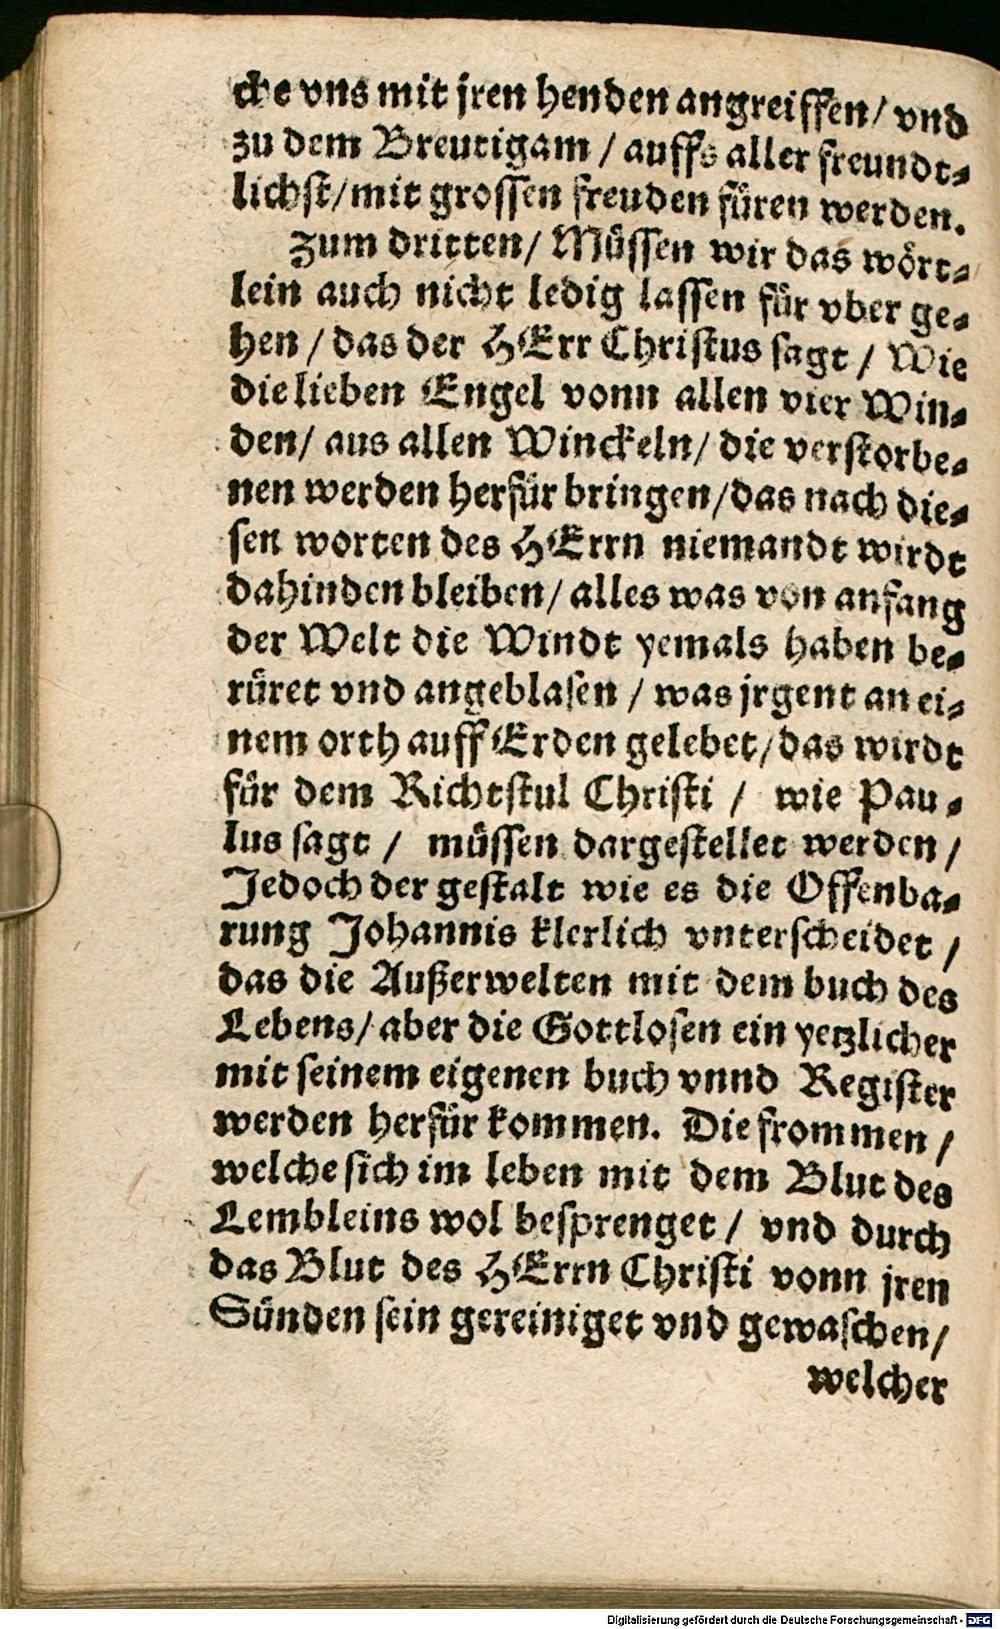 che vns mit jren henden angreiffen / vnd
zu dem Breutigam / auffs aller freundt⸗
lichst / mit grossen freuden füren werden.
Zum dritten / Müssen wir das wört⸗
lein auch nicht ledig lassen für vber ge⸗
hen / das der HErr Christus sagt / Wie
die lieben Engel vonn allen vier Win⸗
den / aus allen Winckeln / die verstorbe⸗
nen werden herfür bringen / das nach die⸗
sen worten des HErrn niemandt wirdt
dahinden bleiben / alles was von anfang
der Welt die Windt yemals haben be⸗
rüret vnd angeblasen / was jrgent an ei⸗
nem orth auff Erden gelebet / das wirdt
für dem Richtstul Christi / wie Pau⸗
lus sagt / müssen dargestellet werden /
Jedoch der gestalt wie es die Offenba⸗
rung Johannis klerlich vnterscheidet /
das die Außerwelten mit dem buch des
Lebens / aber die Gottlosen ein yetzlicher
mit seinem eigenen buch vnnd Register
werden herfür kommen. Die frommen /
welche sich im leben mit dem Blut des
Lembleins wol besprenget / vnd durch
das Blut des HErrn Christi vonn jren
Sünden sein gereiniget vnd gewaschen /
welcher
Digitalisierung gefördert durch die Deutsche Forschungsgemeinschaft - DFG